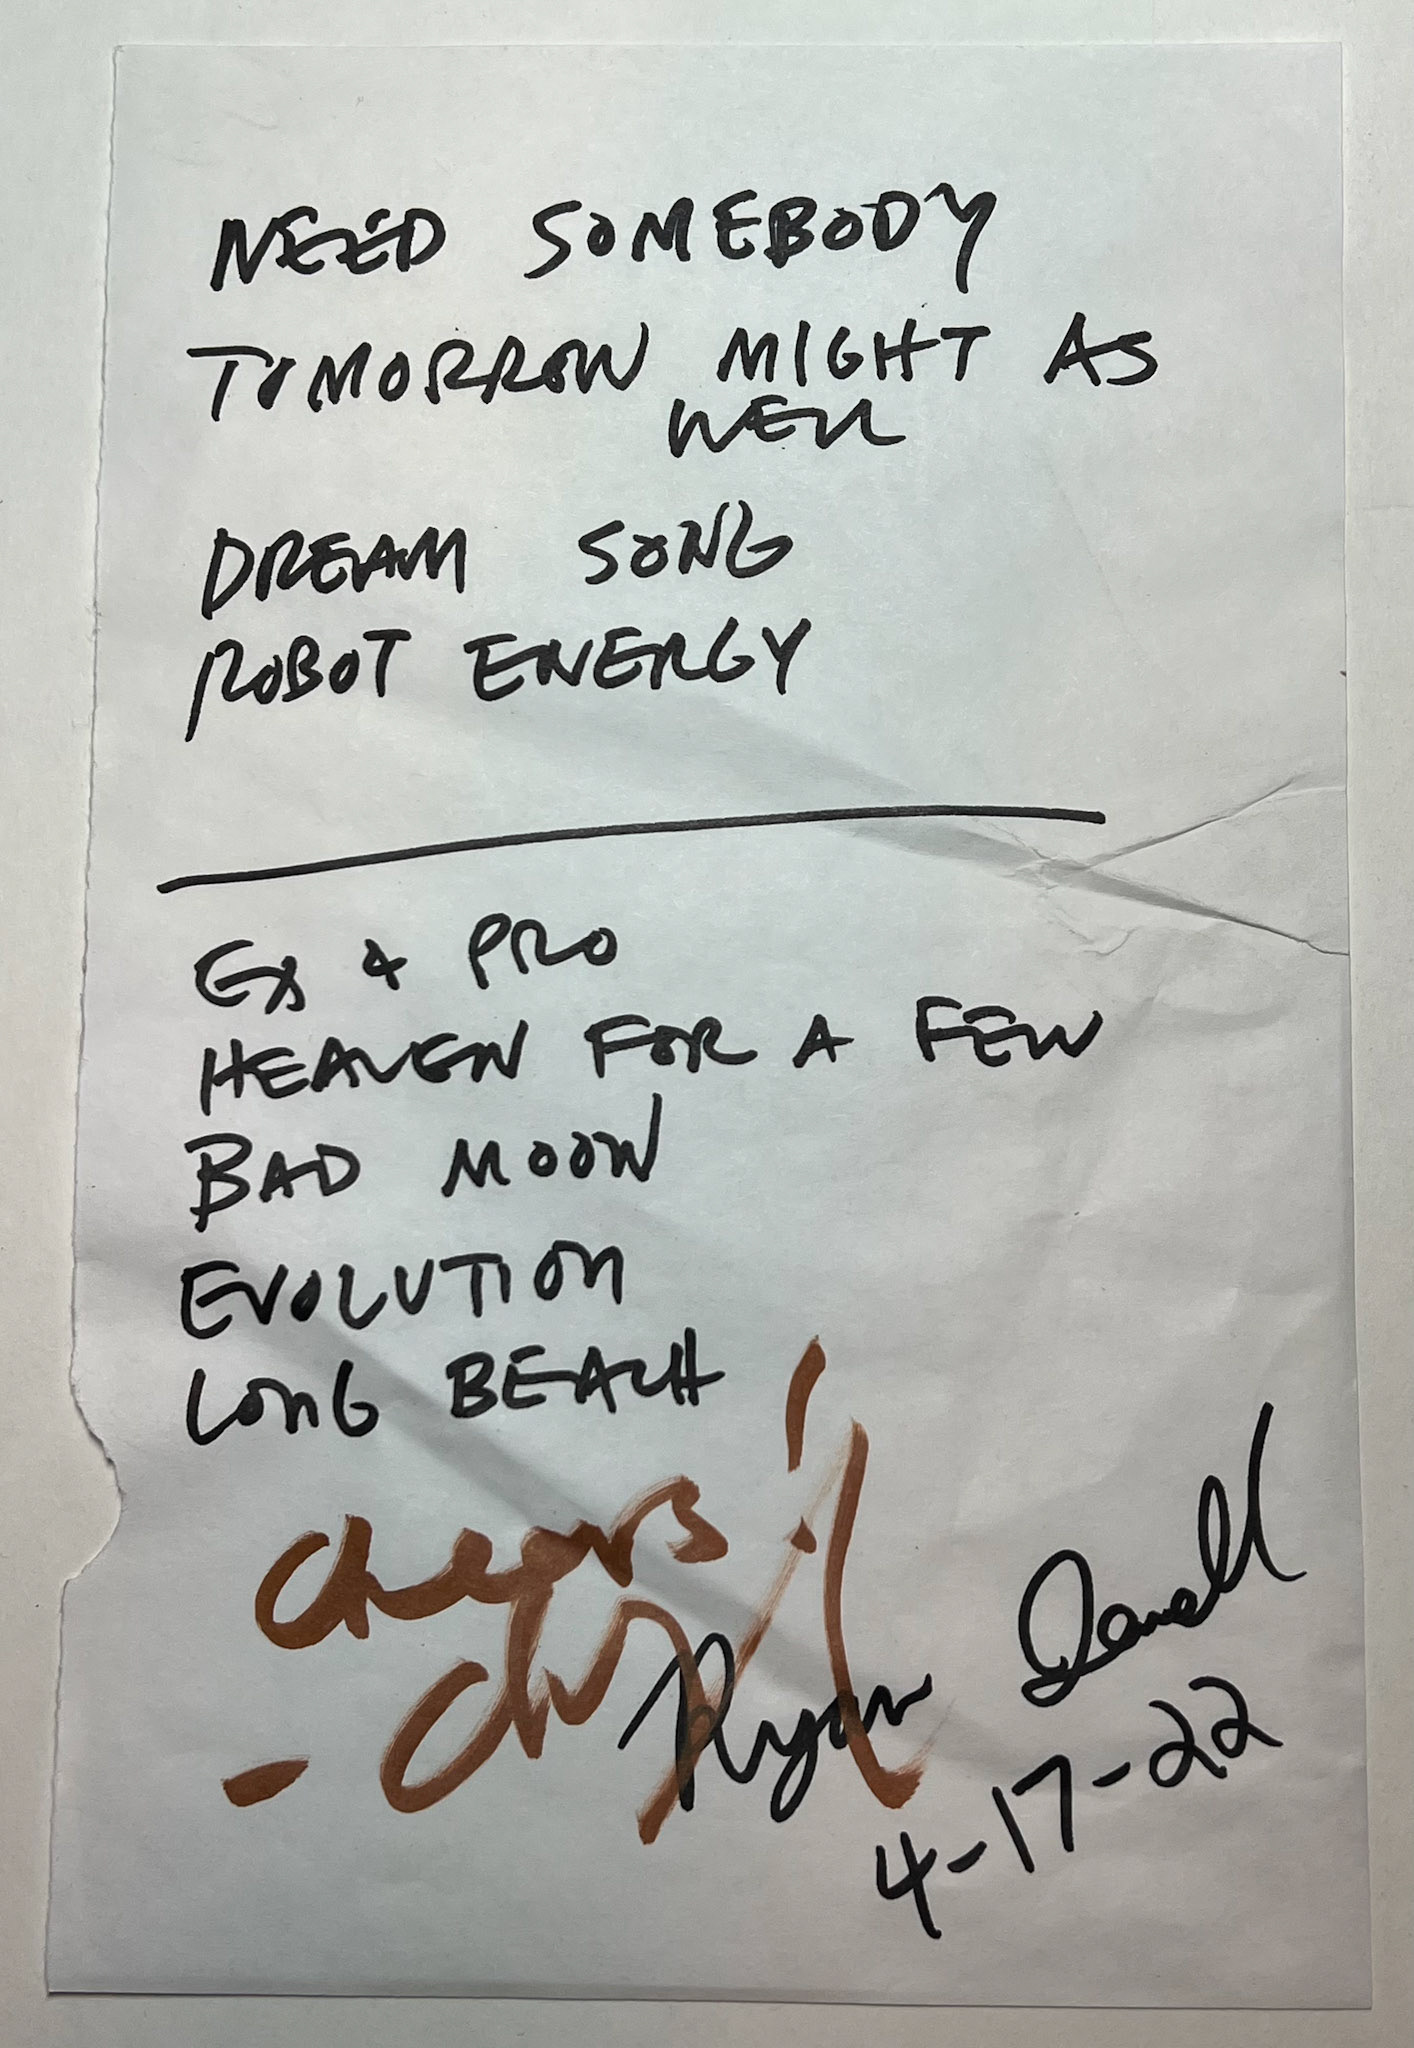 NEED SOMEBODY
TOMORROW MIGHT AS
WELL
DREAM SONG
ROBOT ENERGY
EX + PRO
HEAVEN FOR A FEW
BAD MOON
EVOLUTION
LONG BEACH
cheers!
Ryan
4-17-22